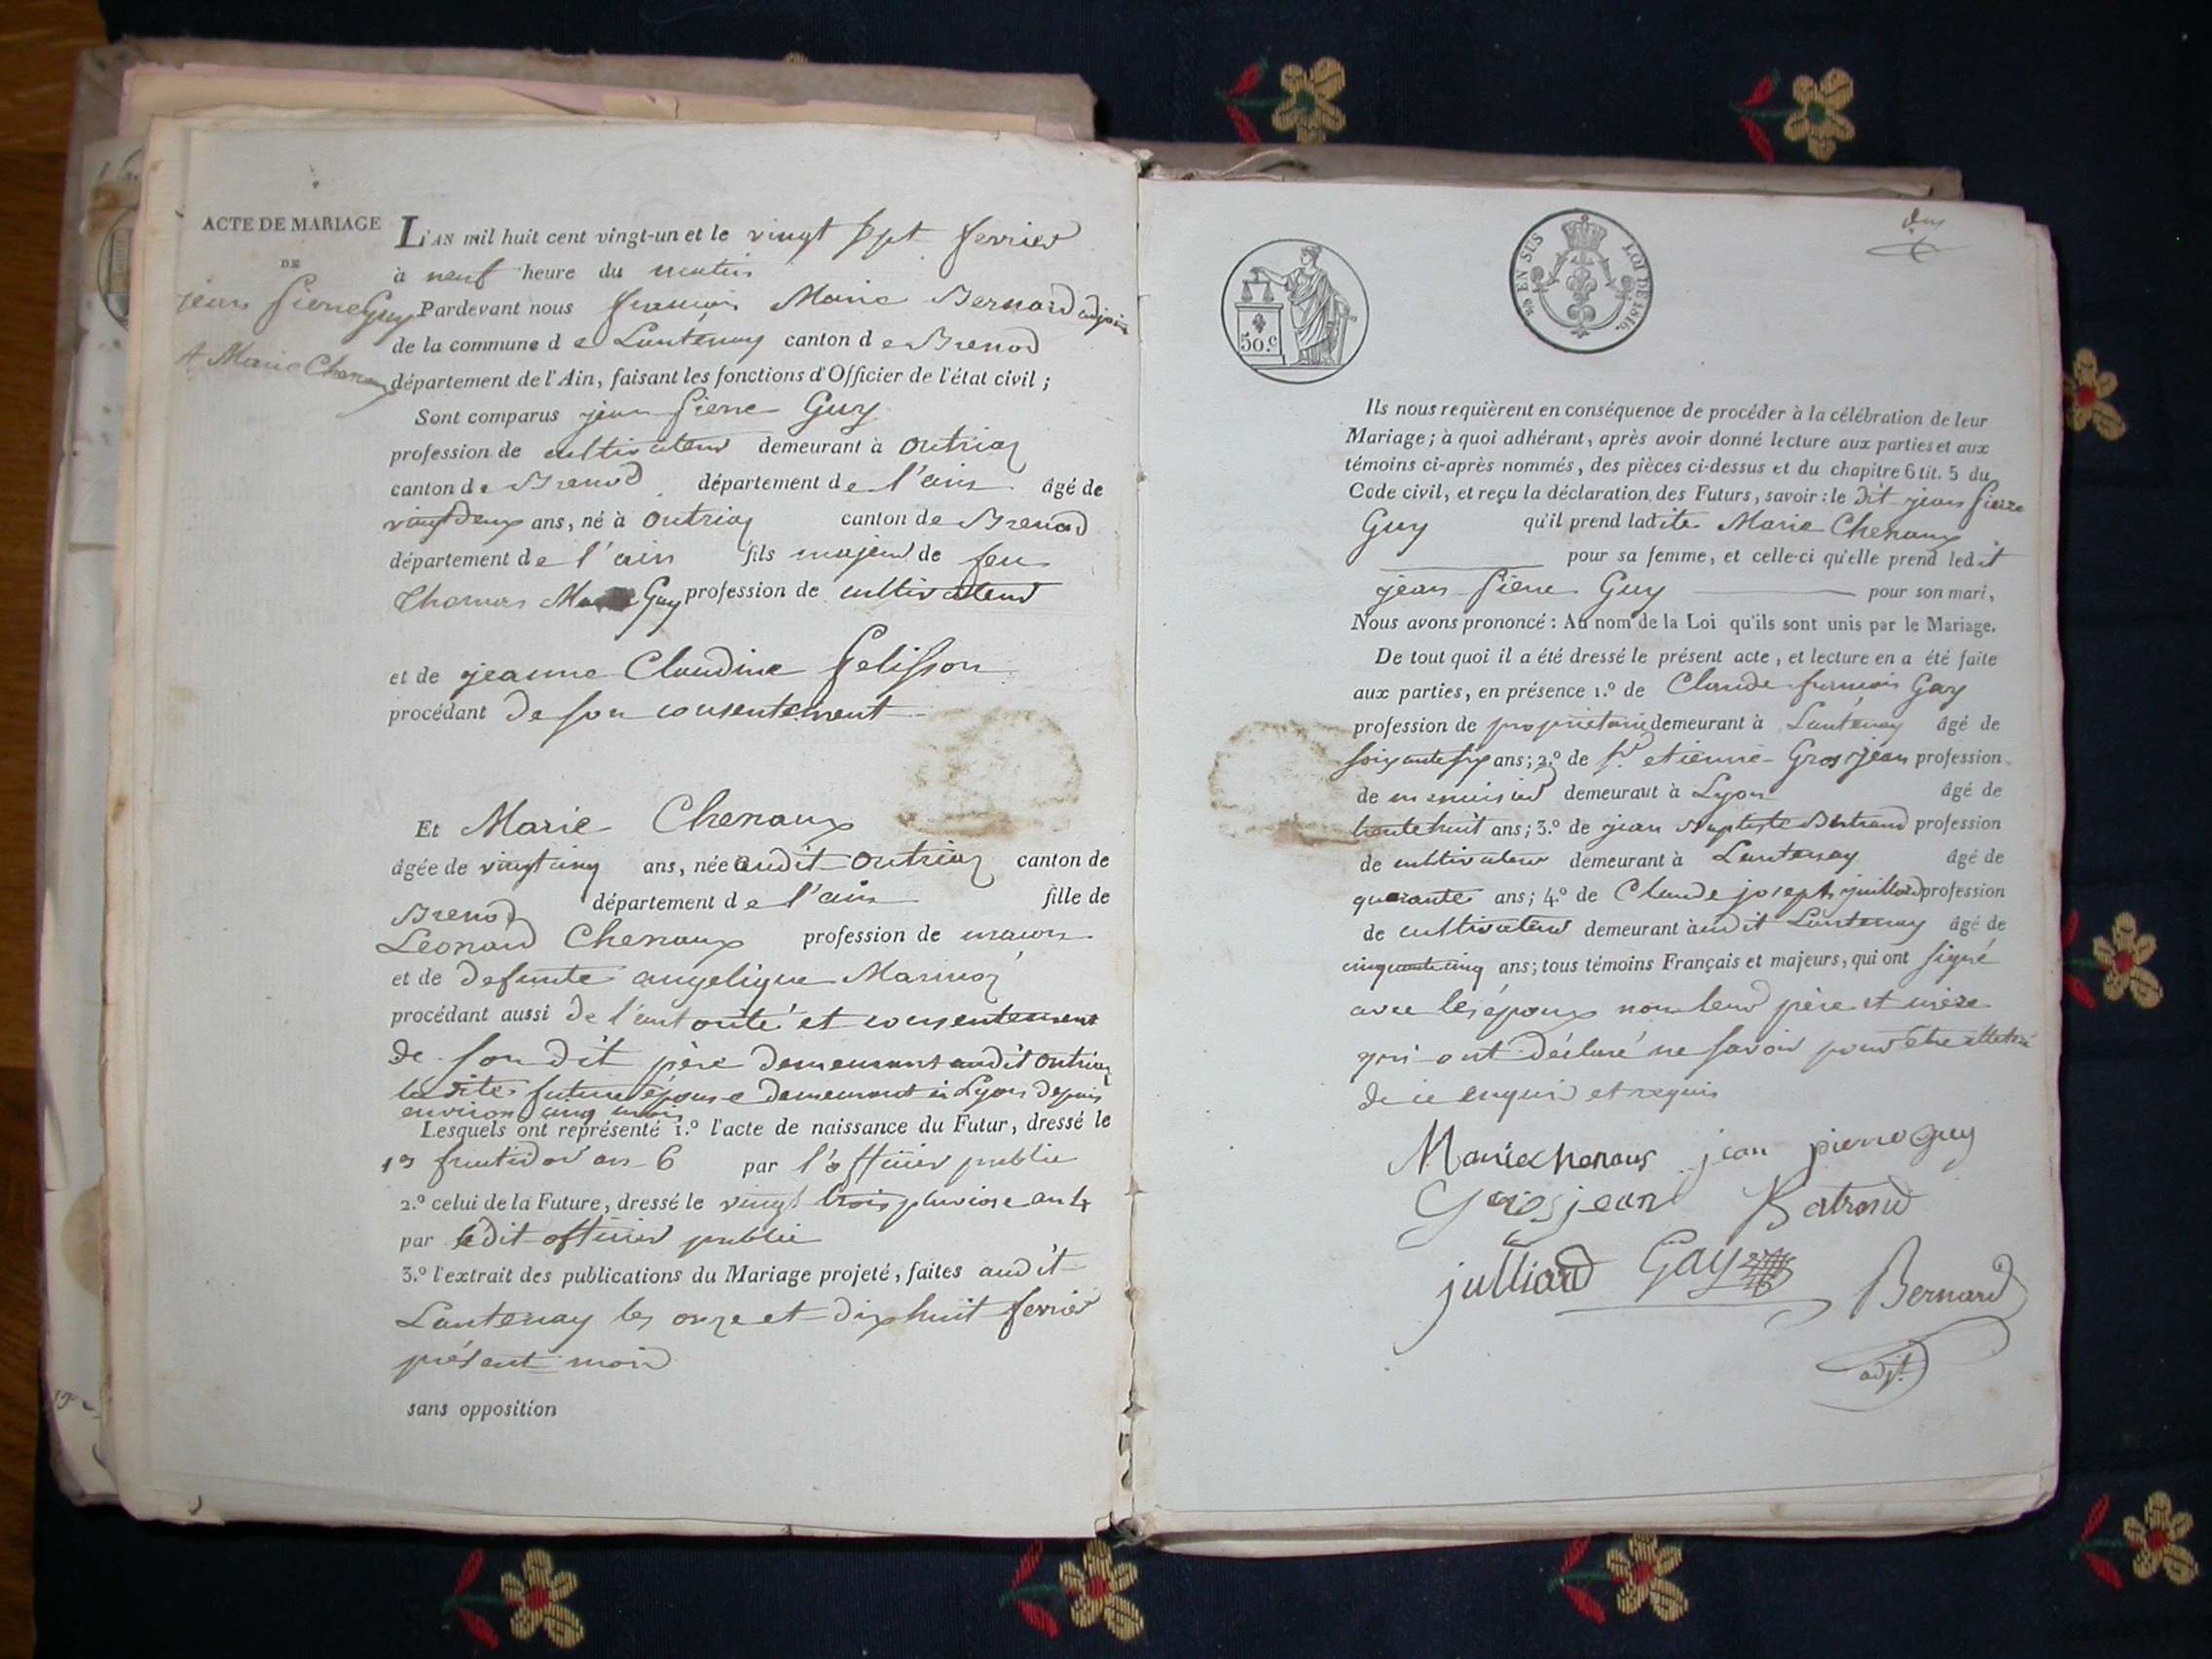 ACTE DE MARIAGE
DE
jean pierre Guy
A Marie Chenaux
L'AN mil huit cent vingt-un et le vingt sept fevrier
à neuf heure du matin
Pardevant nous francois Marie Bernard adjoint
de la commune de Lantenay canton de Brenod
département de l'Ain, faisant les fonctions d'Officier de l'état civil ;
Sont comparus jean pierre Guy
profession de cultivateur demeurant à Outriaz
canton de Brenod département de l'ain âgé de
vingt deux ans, né à Outriaz canton de Brenod
département de l'ain fils majeur de feu
Thomas Guy profession de cultivateur
et de jeanne Claudine pelisson
procédant de son consentement
Et Marie Chenaux
âgée de vingt cinq ans, née audit Outriaz canton de
Brenod département de l'ain fille de
Leonard Chenaux profession de macon
et de defunte angelique Marinoz
procédant aussi de l'autorité et consentement
de son dit père demeurant audit Outriaz
ladite future épouse demeurant à Lyon depuis
environ cinq mois
Lesquels ont représenté 1.º l'acte de naissance du Futur, dressé le
19 fructidor an 6 par l'officier public
2.º celui de la Future, dressé le vingt trois pluviose an 4
par ledit officier public
3.º l'extrait des publications du Mariage projeté, faites audit
Lantenay les onze et dix huit fevrier
présent mois
sans opposition
30.c
EN SUS
LOI DE 1816.
Ils nous requièrent en conséquence de procéder à la célébration de leur
Mariage ; à quoi adhérant, après avoir donné lecture aux parties et aux
témoins ci-après nommés, des pièces ci-dessus et du chapitre 6 tit. 5 du
Code civil, et reçu la déclaration des Futurs, savoir : le dit jean pierre
Guy qu'il prend ladite Marie Chenaux
pour sa femme, et celle-ci qu'elle prend ledit
jean pierre Guy pour son mari,
Nous avons prononcé : Au nom de la Loi qu'ils sont unis par le Mariage.
De tout quoi il a été dressé le présent acte, et lecture en a été faite
aux parties, en présence 1.º de Claude francois Gay
profession de proprietaire demeurant à Lantenay âgé de
soixante six ans ; 2.º de Sr etienne Grosjean profession
de menuisier demeurant à Lyon âgé de
trente huit ans ; 3.º de jean Baptiste Bertrand profession
de cultivateur demeurant à Lantenay âgé de
quarante ans ; 4.º de Claude joseph juilliard profession
de cultivateur demeurant à audit Lantenay âgé de
cinquante cinq ans ; tous témoins Français et majeurs, qui ont signé
avec les époux non leur père et mère
qui ont déclaré ne savoir pour être illettré
de ce enquis et requis
Marie chenaux jean pierre guy
Grosjean Bertrand
julliard Gay Bernard
adjt